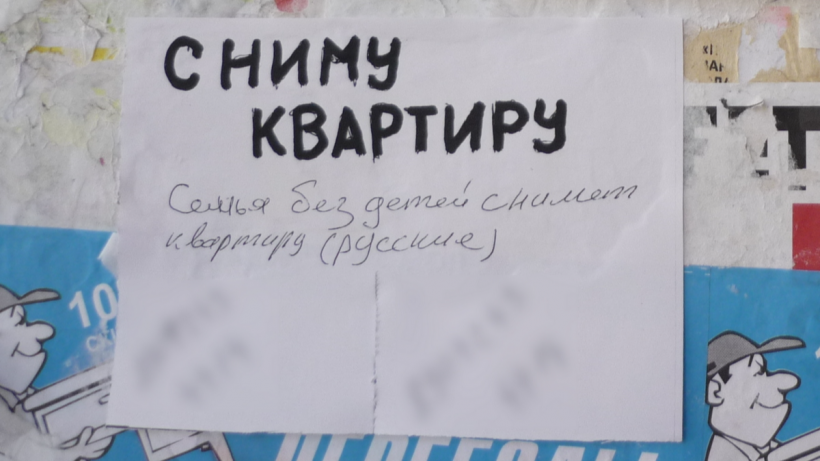 СНИМУ
КВАРТИРУ
Семья без детей снимет
квартиру (русские)
10
ПЕРЕЕЗДЫ